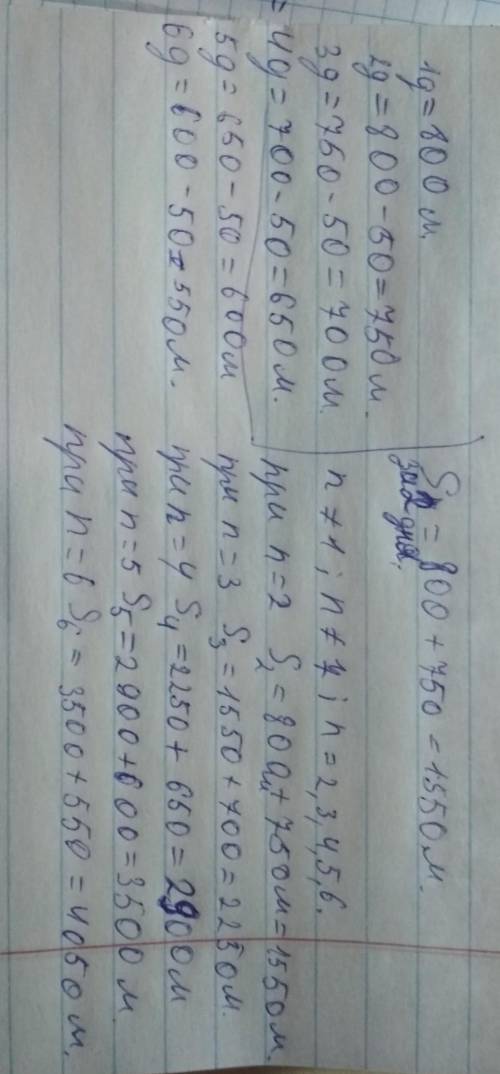 1g = 800 м.
2g = 800 - 50 = 750 м.
3g = 750 - 50 = 700 м.
4g = 700 - 50 = 650 м.
5g = 650 - 50 = 600 м
6g = 600 - 50 = 550 м.
S за 2 дня. = 800 + 750 = 1550 м.
n ≠ 1; n ≠ 1; n = 2, 3, 4, 5, 6.
при n = 2 S₂ = 800м + 750м = 1550 м.
при n = 3 S₃ = 1550 + 700 = 2250 м.
при n = 4 S₄ = 2250 + 650 = 2900 м
при n = 5 S₅ = 2900 + 600 = 3500 м
при n = 6 S₆ = 3500 + 550 = 4050 м.